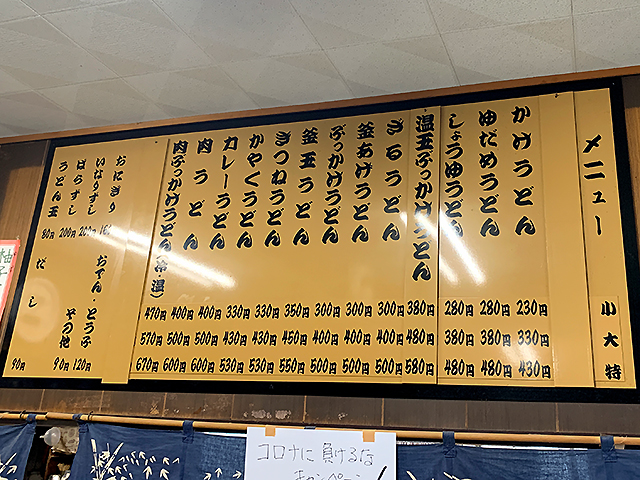 メニュー 小 大 特
かけうどん 230円 330円 430円
ゆだめうどん 280円 380円 480円
しょうゆうどん 280円 380円 480円
温玉ぶっかけうどん 380円 480円 580円
ざるうどん 300円 400円 500円
釜あげうどん 300円 400円 500円
ぶっかけうどん 300円 400円 500円
釜玉うどん 350円 450円 550円
きつねうどん 330円 430円 530円
かやくうどん 330円 430円 530円
カレーうどん 400円 500円 600円
肉うどん 400円 500円 600円
肉ぶっかけうどん(冷・温) 470円 570円 670円
おにぎり
いなりずし 200円
ばらずし 200円
うどん玉 80円
おでん・とうふ 120円
その他 90円
だし 90円
コロナに負けるな
キャンペーン!